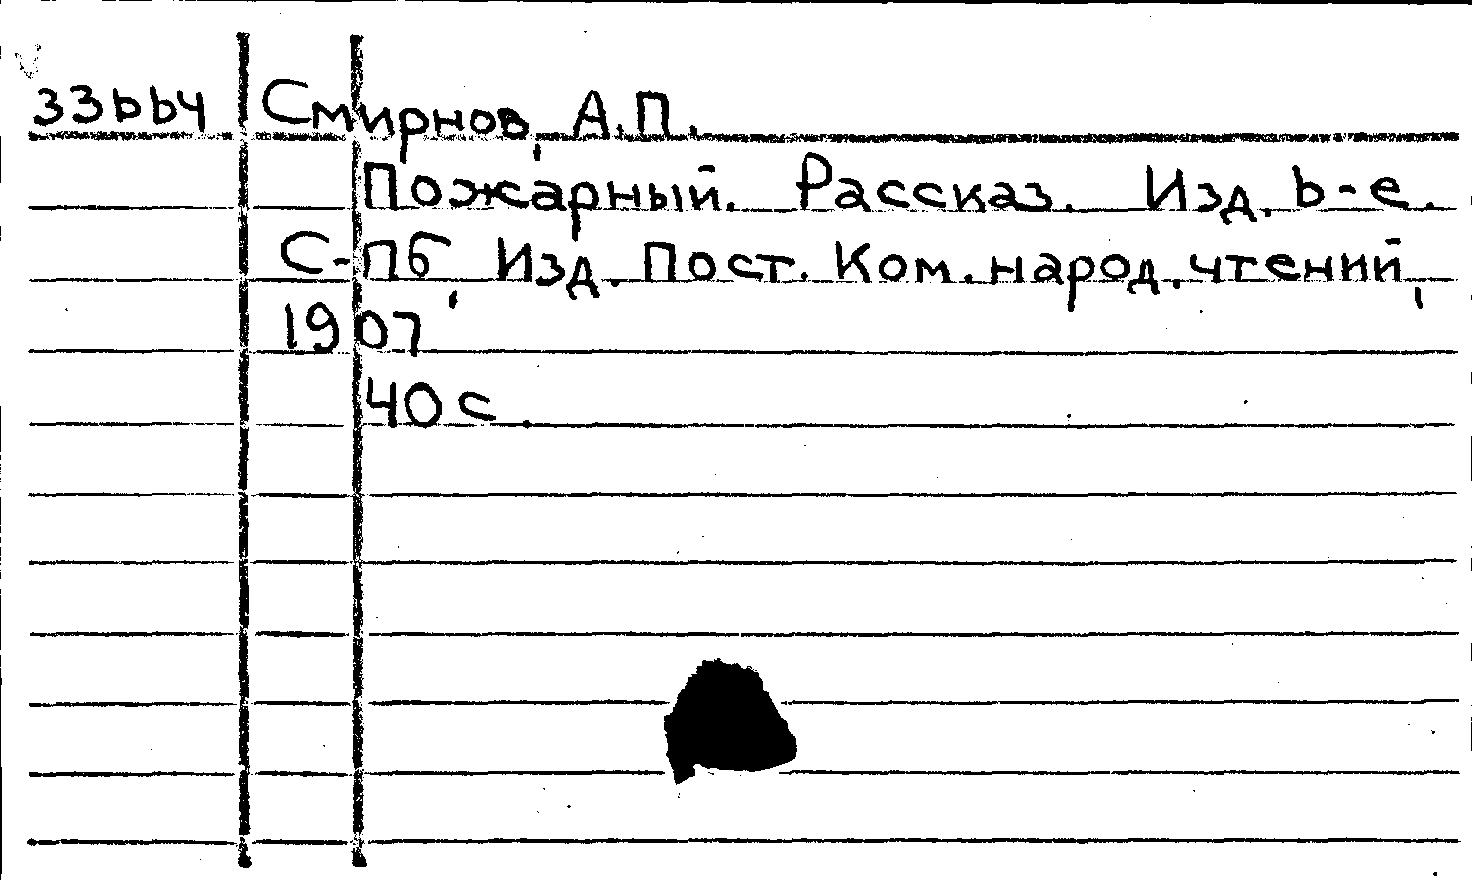 33664 Смирнов, А.П.
Пожарный. Рассказ. Изд. 6-е.
С-Пб, Изд. Пост. Ком. народ. чтений,
1907
40 с.